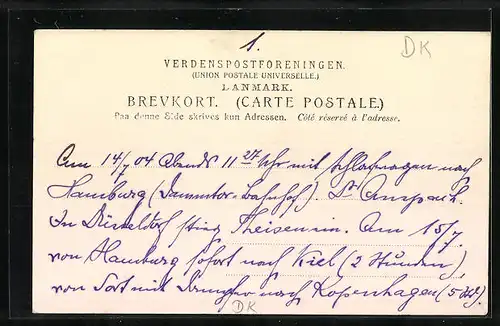 1.
DK
VERDENSPOSTFORENINGEN.
(UNION POSTALE UNIVERSELLE.)
DANMARK.
BREVKORT. (CARTE POSTALE.)
Paa denne Side skrives kun Adressen. Côté réservé à l'adresse.
Am 14/7 04 Abends 11 27 Uhr mit Schlafwagen nach
Hamburg (Dammtor-Bahnhof).
In Düsseldorf stieg Theisen ein. Am 15/7.
von Hamburg sofort nach Kiel (2 Stunden),
von dort mit Dampfer nach Kopenhagen (5
DK